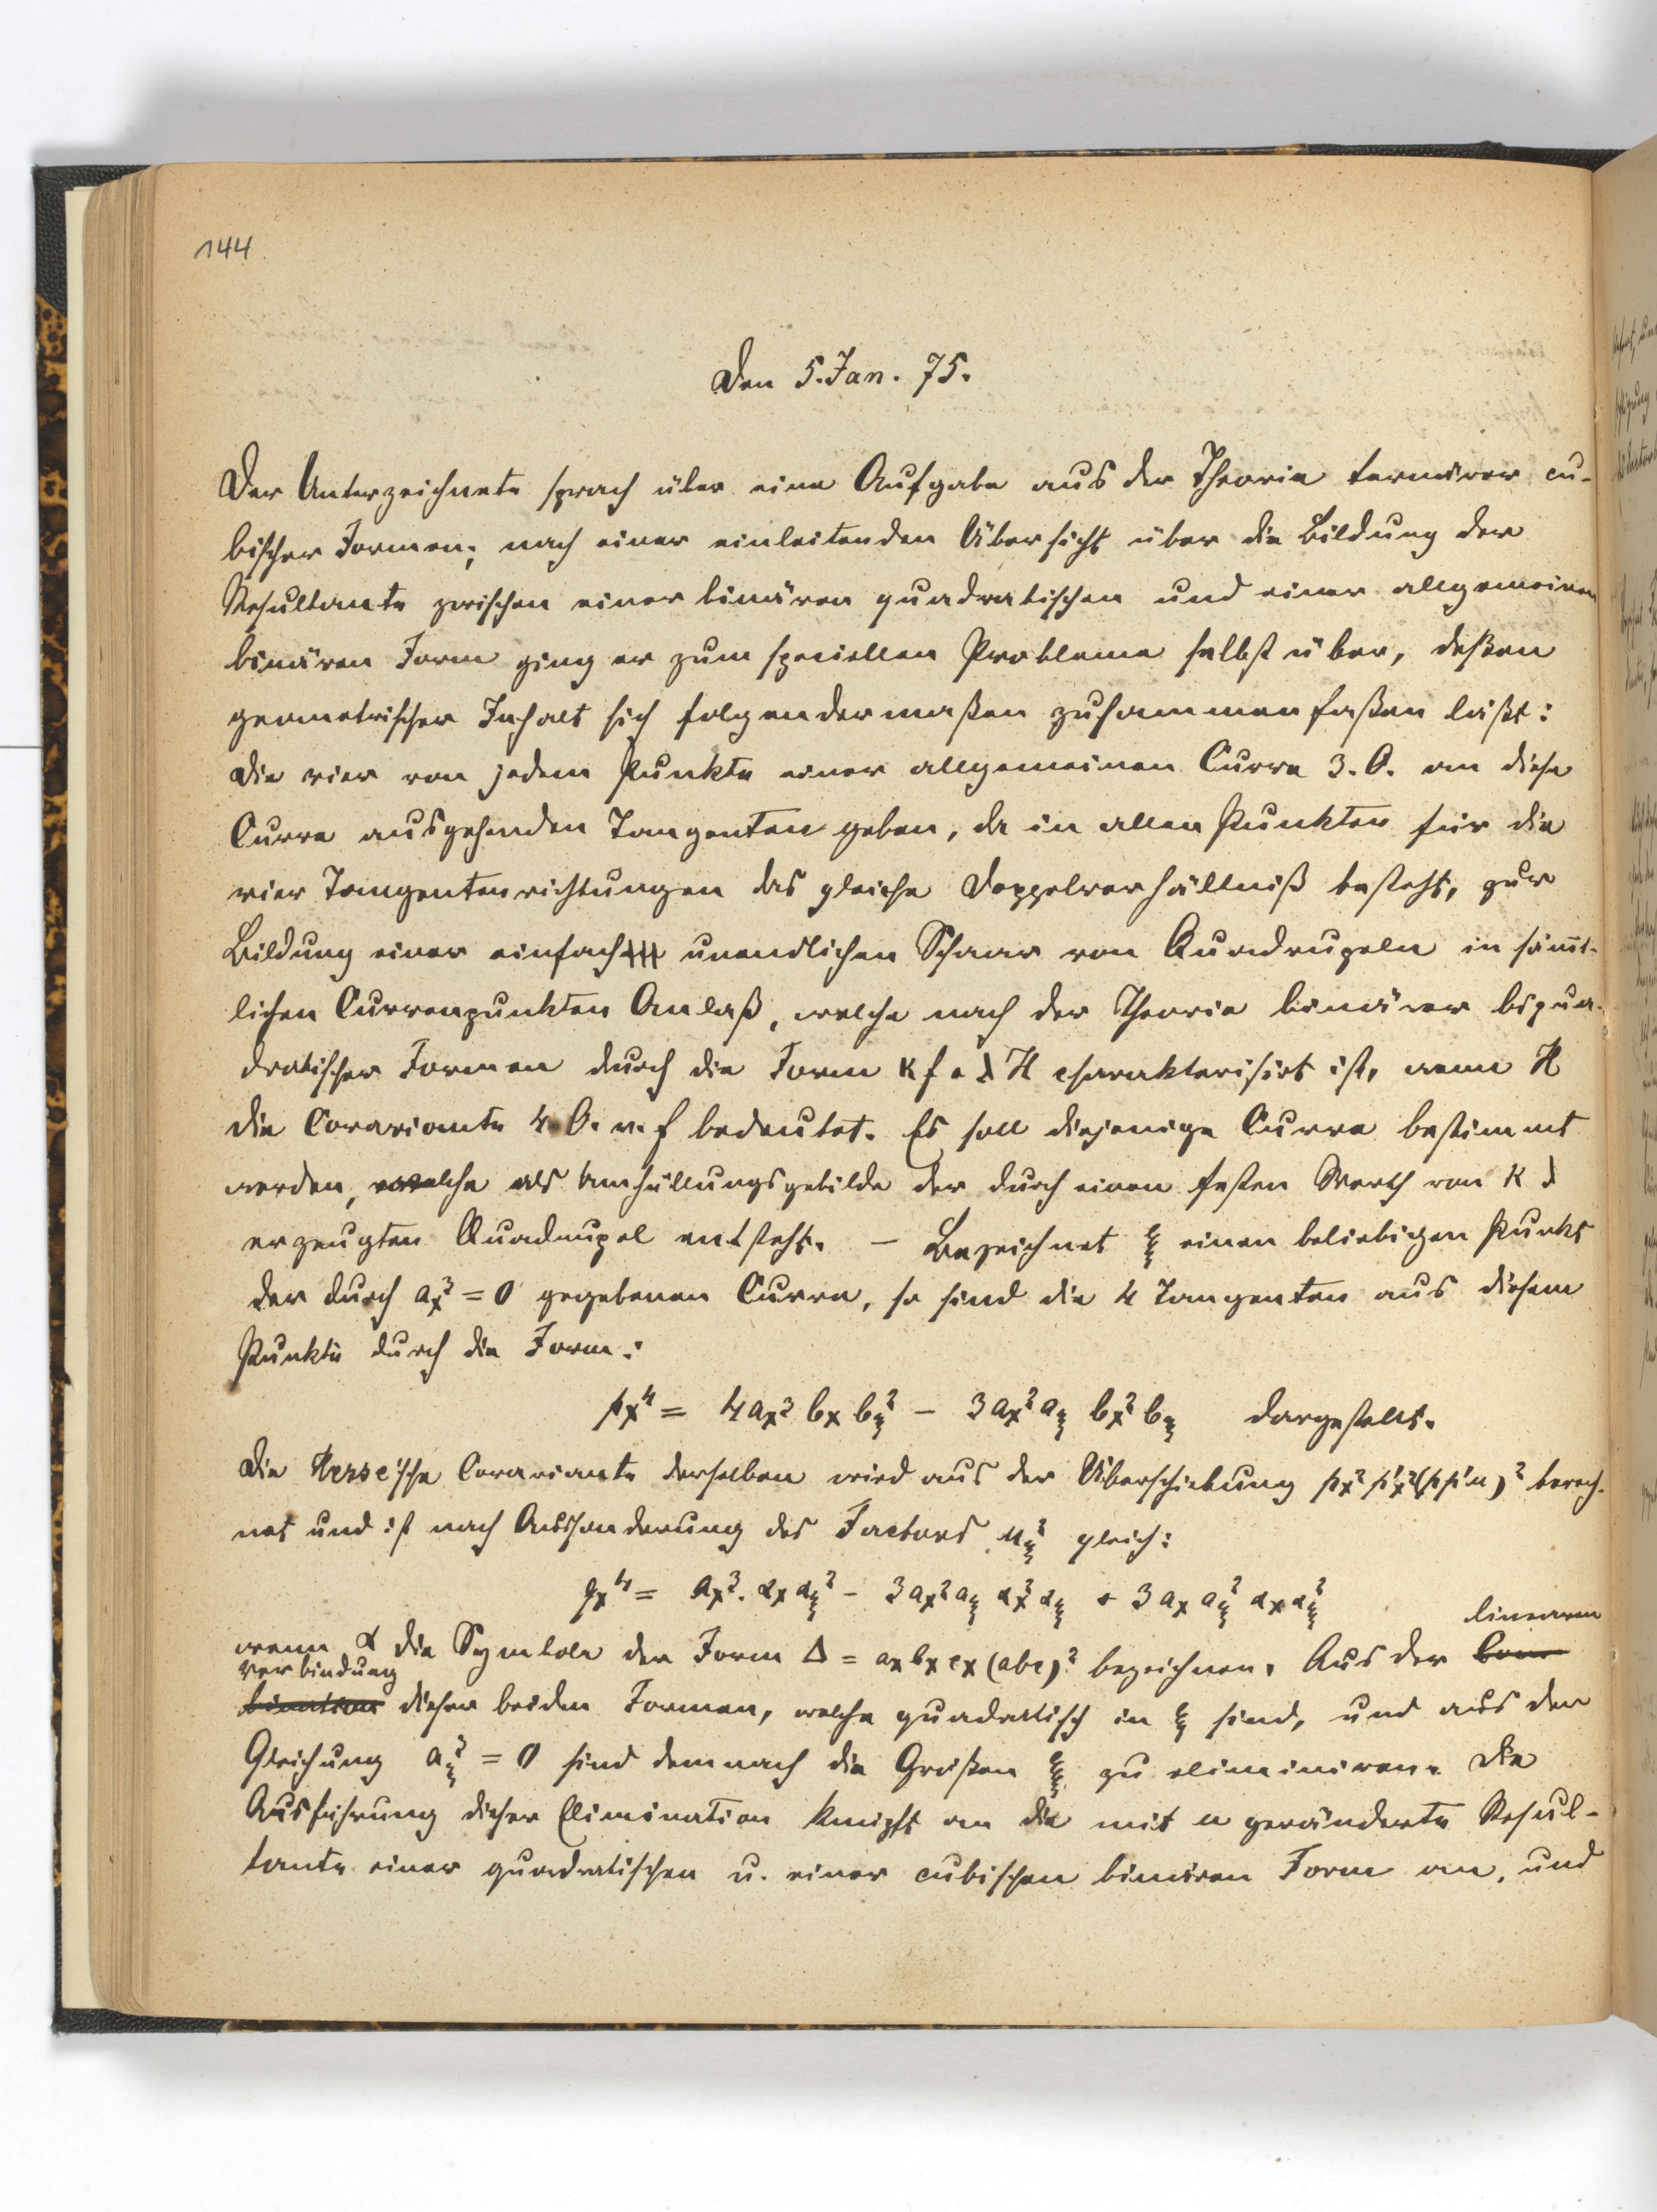 144
Den 5. Jan. 75.
Der Unterzeichnete sprach über eine Aufgabe aus der Theorie ternärer cu-
bischer Formen; nach einer einleitenden Übersicht über die Bildung der
Resultante zwischen einer binären quadratischen und einer allgemeinen
binären Form ging er zum speciellen Probleme selbst über, deßen
geometrischer Inhalt sich folgendermaßen zusammenfaßen läßt:
Die vier von jedem Punkte einer allgemeinen Curve 3. O. an diese
Curve ausgehenden Tangenten geben, da in allen Punkten für die
vier Tangentenrichtungen das gleiche Doppelverhältniß besteht, zur
Bildung einer einfach unendlichen Schaar von Quadrupeln in säm̅t-
lichen Curvenpunkten Anlaß, welche nach der Theorie binärer biqua-
dratischer Formen durch die Form κ f + λ H charakterisirt ist, wenn H
die Covariante 4. O. v. f bedeutet. Es soll diejenige Curve bestimmt
werden, welche als Umhüllungsgebilde der durch einen festen Werth von κ λ
erzeugten Quadrupel entsteht. – Bezeichnet ξ einen beliebigen Punkt
der durch aₓ³ = 0 gegebenen Curve, so sind die 4 Tangenten aus diesem
Punkte durch die Form:
pₓ⁴ = 4aₓ³ bₓ b_ξ² – 3aₓ² a_ξ bₓ² b_ξ dargestellt.
Die Hesse'sche Covariante derselben wird aus der Überschiebung pₓ² p'ₓ² (p p' u)² berech-
net und ist nach Absonderung des Factors u_ξ² gleich:
qₓ⁴ = aₓ³ . αₓ α_ξ² – 3aₓ² a_ξ αₓ² α_ξ + 3 aₓ a_ξ² αₓ α_ξ²
linearen
wenn α die Symbole der Form Δ = aₓ bₓ cₓ (abc)² bezeichnen. Aus der Com-
verbindung
bination dieser beiden Formen, welche quadratisch in ξ sind, und aus der
Gleichung a_ξ³ = 0 sind demnach die Größen ξ zu eliminiren. Die
Ausführung dieser Elimination knüpft an die mit u geränderte Resul-
tante einer quadratischen u. einer cubischen binären Form an, und